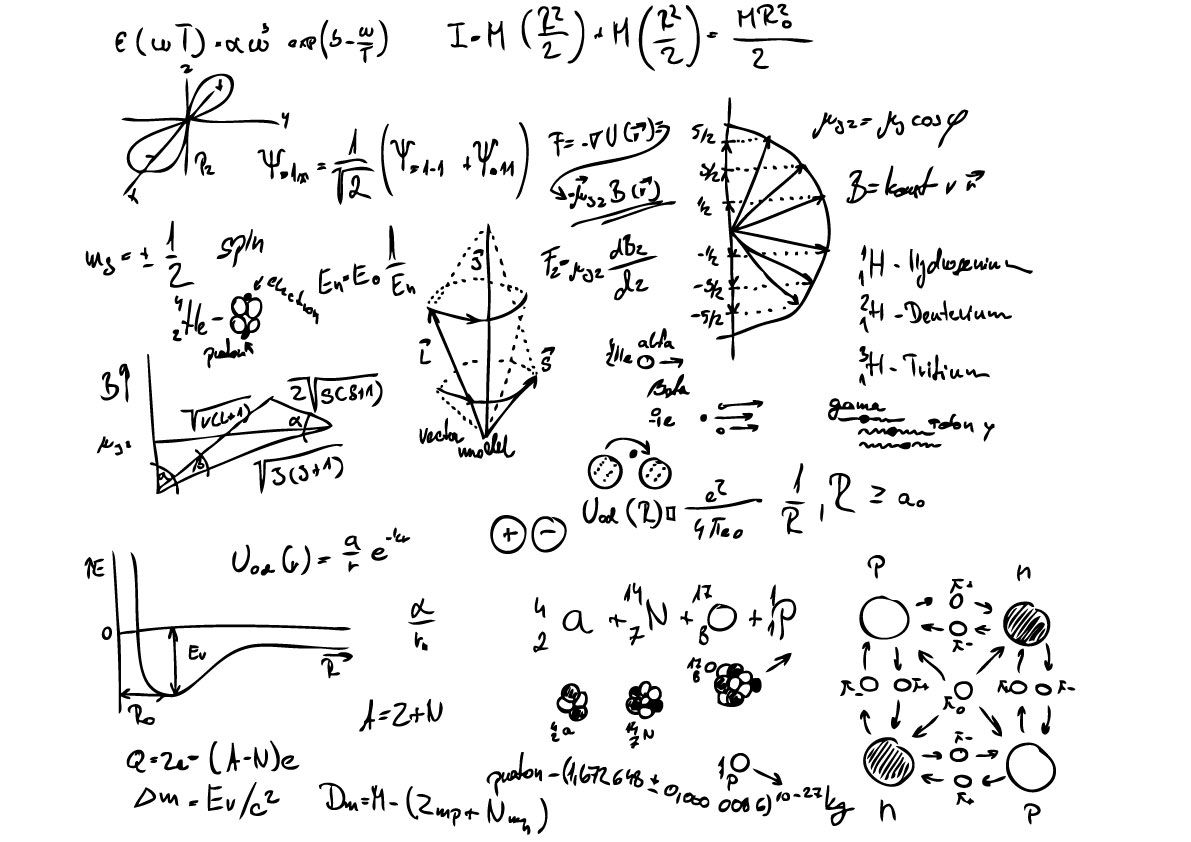 ε(ωT) = αω³ exp(S - ω/T)
I = M (R²/2) + M (R²/2) = MR₀²/2
z
y
x
+
−
P₂
Ψ₌₁ₘ = 1/√2 (Ψ₌₁₋₁ + Ψ₌₁₁)
F = -∇U(r⃗) =
-μ⃗₃₂ B(r⃗)
F₂ = μ₃₂ dB₂/dz
5/2
3/2
1/2
-1/2
-3/2
-5/2
μ₃₂ = μ₃ cos φ
B = konst v r⃗
mₛ = ± 1/2 spin
Eₙ = E₀ 1/Eₙ
⁴₂He -
electron
proton
J⃗
L⃗
S⃗
vector model
¹₁H - Hydrogenium
²₁H - Deuterium
³₁H - Tritium
⁴He alfa
Beta
⁰₋₁e
gama
B↑
√L(L+1)
2√S(S+1)
α
μ₃₂
α
β
√J(J+1)
U_od(R) = e²/4πε₀ 1/R, R ≥ a₀
+ −
↑E
0
Eᵥ
R₀
R→
U_od(r) = a/r e^-kr
α/rₙ
A = Z + N
⁴₂a + ¹⁴₇N + ¹⁷₈O + ¹₁P
¹⁷₈O
⁴₂a
¹⁴₇N
¹P
p
n
π+
π-
π-
π+
π₀
π₀
π-
π-
π+
n
p
Q = Ze = (A-N)e
Δm = Eᵥ/c²
Dm = M - (Zmp + Nmₙ)
proton - (1,672 648 ± 0,000 008 6) 10-27 kg